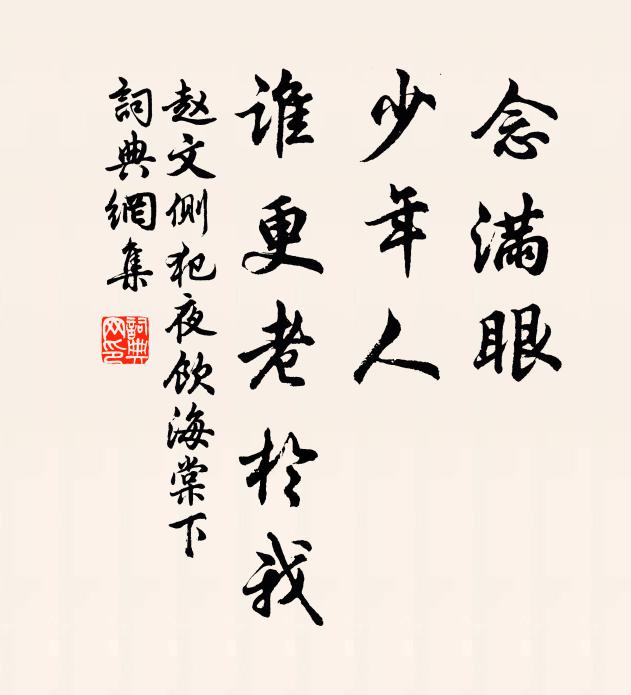 念满眼
少年人
谁更老於我
赵文侧犯夜饮海棠下
詞典網集
詞典
网印